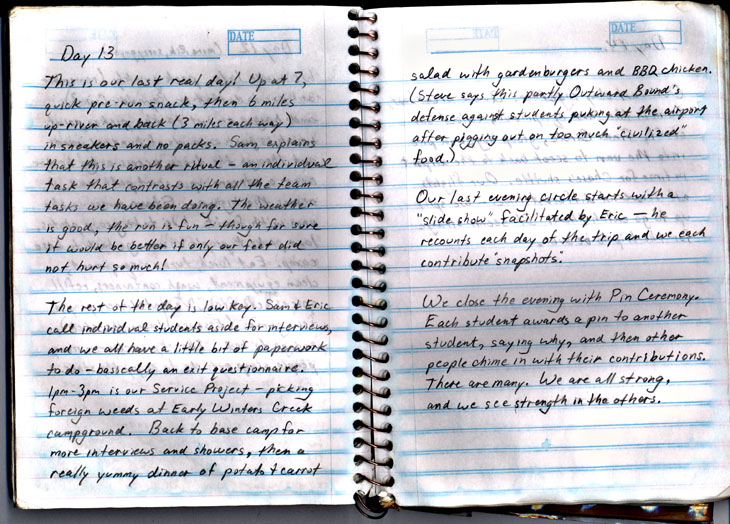 DATE
Day 13
This is our last real day! Up at 7,
quick pre-run snack, then 6 miles
up-river and back (3 miles each way)
in sneakers and no packs. Sam explains
that this is another ritual - an individual
task that contrasts with all the team
tasks we have been doing. The weather
is good, the run is fun - though for sure
it would be better if only our feet did
not hurt so much!
The rest of the day is low key. Sam & Eric
call individual students aside for interviews,
and we all have a little bit of paperwork
to do - basically an exit questionnaire.
1pm-3pm is our Service Project - picking
foreign weeds at Early Winters Creek
campground. Back to base camp for
more interviews and showers, then a
really yummy dinner of potato & carrot
DATE
salad with gardenburgers and BBQ chicken.
(Steve says this partly Outward Bound's
defense against students puking at the airport
after pigging out on too much "civilized"
food.)
Our last evening circle starts with a
"slide show" facilitated by Eric — he
recounts each day of the trip and we each
contribute "snapshots".
We close the evening with Pin Ceremony.
Each student awards a pin to another
student, saying why, and then other
people chime in with their contributions.
There are many. We are all strong,
and we see strength in the others.